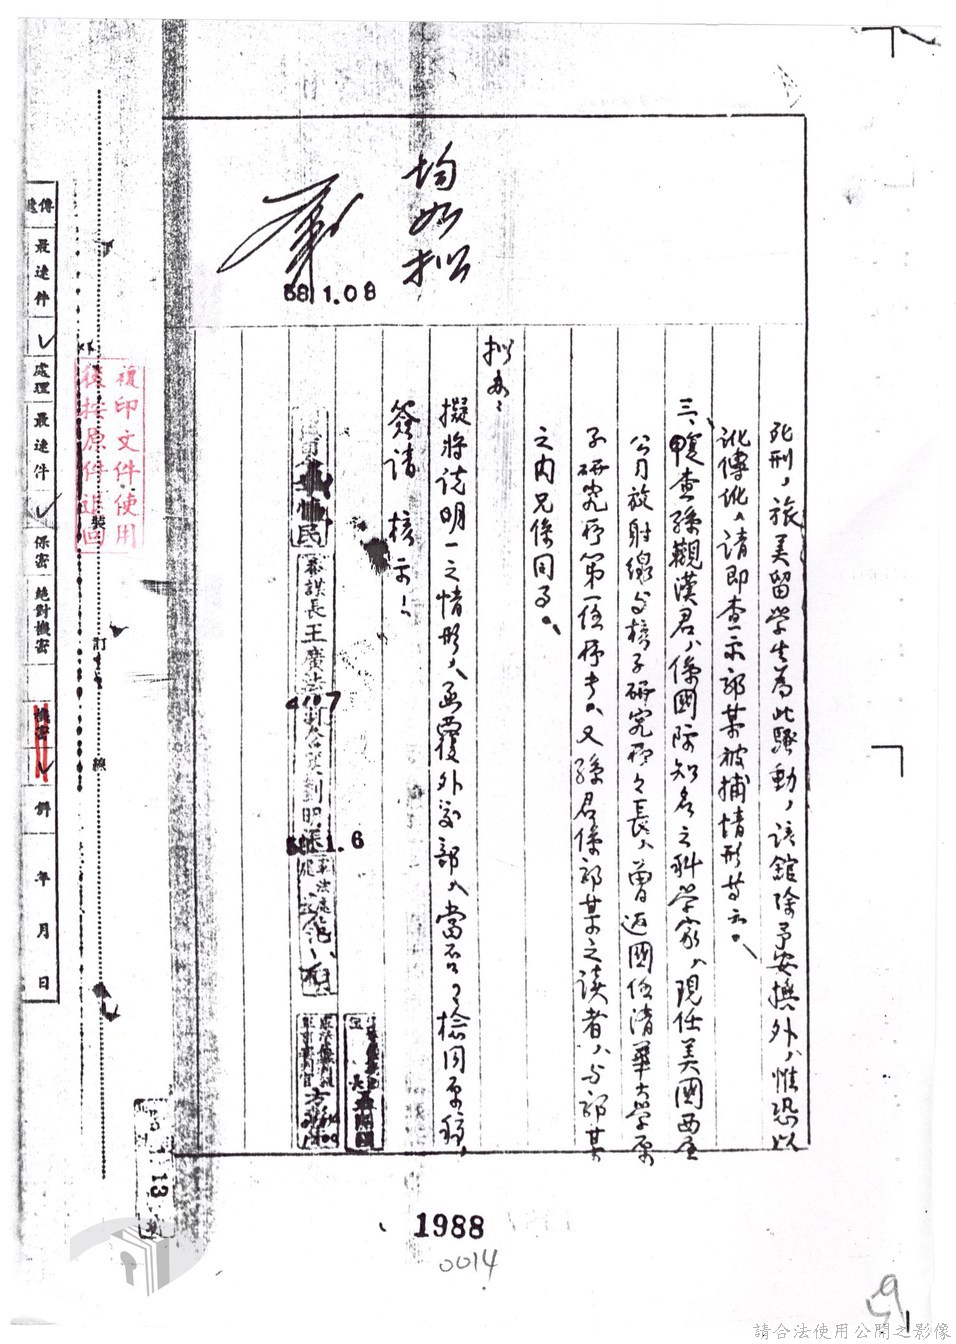 死刑，旅美留学生為此騷動，该館除予安撫外，惟恐以
訛傳訛，請即查示郭某被捕情形等云。
三、複查孫觀漢君，係國际知名之科学家，現任美國西屋
公司放射線与核子研究所所長，曾返國任清華大学原
子研究所第一任所長。又孫君係郭某之读者，与郭某
之内兄係同事。
拟办：
擬將说明一之情形，函覆外交部，當否？檢同原稿，
簽請 核示！
均如拟
58.1.08
參謀長王廣法
58.1.6
複印文件使用
後按原件退回
裝
訂
線
傳遞
最速件
處理
最速件
保密
絕對機密
機密
解
年
月
日
13
1988
0014
請合法使用公開之影像